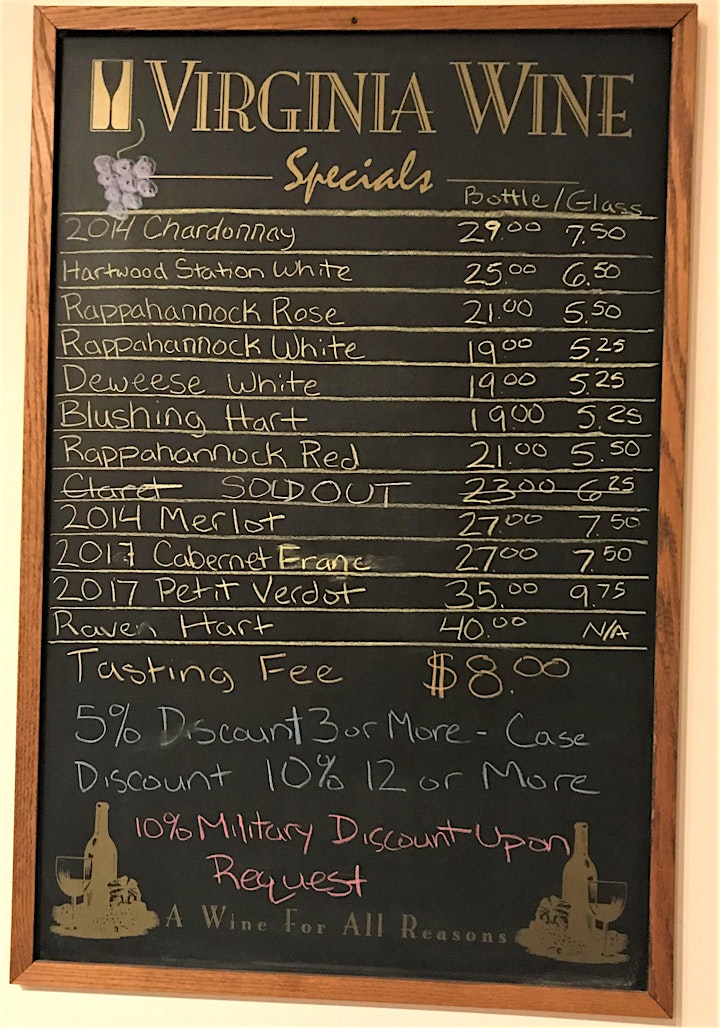 VIRGINIA WINE
Specials
Bottle/Glass
2014 Chardonnay 29.00 7.50
Hartwood Station White 25.00 6.50
Rappahannock Rose 21.00 5.50
Rappahannock White 19.00 5.25
Deweese White 19.00 5.25
Blushing Hart 19.00 5.25
Rappahannock Red 21.00 5.50
Claret SOLD OUT 23.00 6.25
2014 Merlot 27.00 7.50
2017 Cabernet Franc 27.00 7.50
2017 Petit Verdot 35.00 9.75
Raven Hart 40.00 N/A
Tasting Fee $8.00
5% Discount 3 or More - Case
Discount 10% 12 or More
10% Military Discount Upon
Request
A Wine For All Reasons